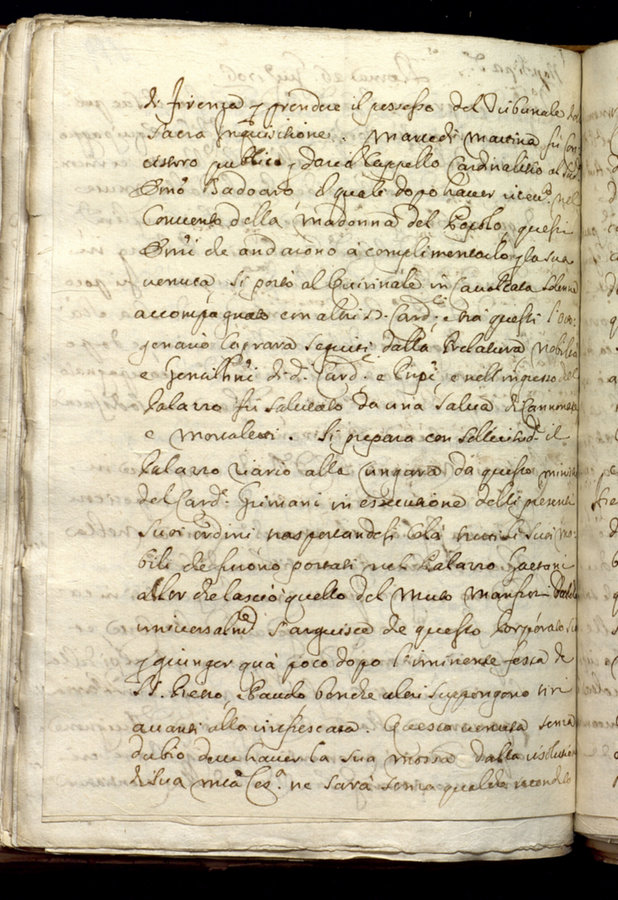 di Firenza p prendere il possesso del Tribunale del
Sacra Inquisitione. Martedi mattina fù Con
cistoro publico p dare il Cappello Cardinalitio al Sud.
Emo Badoaro il quale dopo haver ricevu. nel
Convento della Madonna del Popolo questi
Emi che andarono à complimentarlo p la sua
venuta si portò al Quirinale in Cavalcata Solenne
accompagnato con altri Card.li e trà questi l'
genario Seguiti dalla Prelatura nobiltà
e Gentilhni di d. Card. e Pnpi e nell'ingresso del
Palazzo fù salutato da una salva di Cannonate
e Mortaletti. Si prepara con sollecitud. il
Palazzo Riario alla Lungara da questo ministro
del Card. Grimani in essecutione delli presenti
suoi ordini trasportandosi colà tutti li suoi mo-
bili che furono portati nel Palazzo Gaetani
allor che lasciò quello del Muto
universalm.te s'arguisce che questo Porporato sia
p giunger quà poco dopo l'iminente festa di
S. Pietro, e Paulo benche altri suppongono
avanti alla rinfrescata. Questa venuta senza
dubio deve haver la sua mossa dalla risolutione
di Sua Mtà Ces.a ne sarà senza qualche recondito